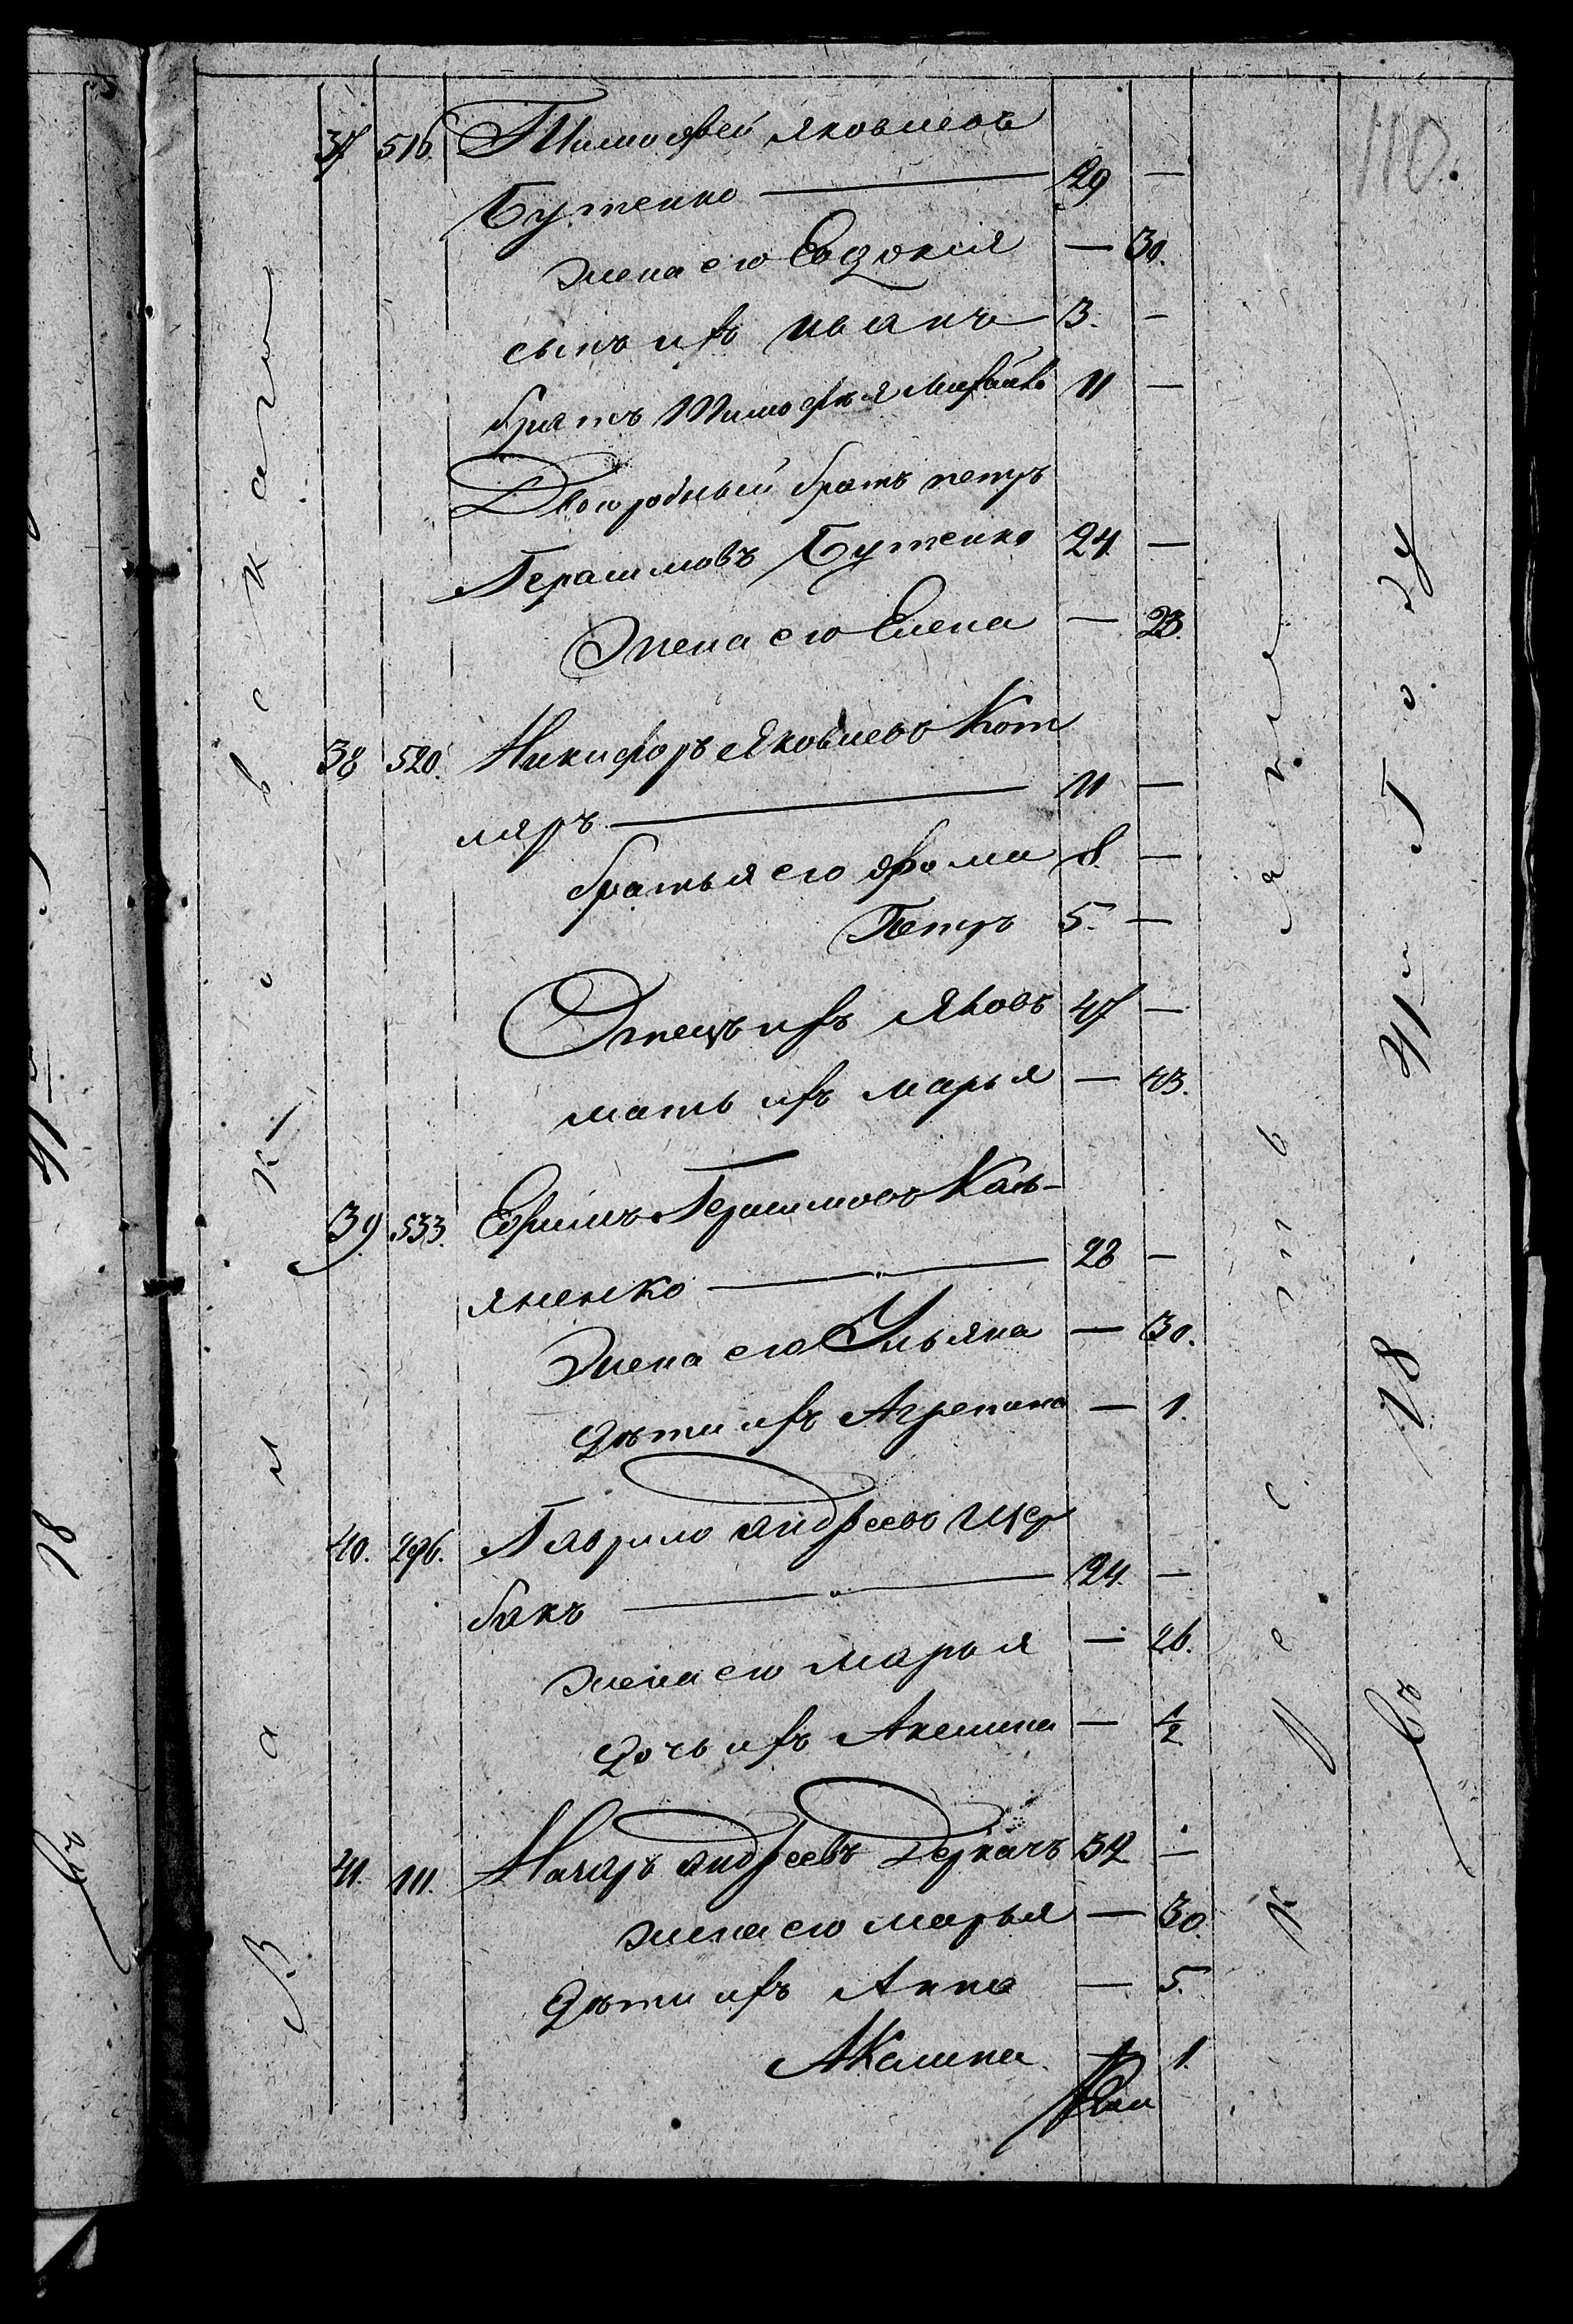 110.
37 516. Тимофей Яковлевъ
Бутенко — 29 —
жена его Евдокия — 30.
сынъ ихъ Иванъ 3. —
братъ Тимофея Михайло 11 —
Двоюродный братъ петръ
Герасимовъ Бутенко 24 —
Жена его Елена — 23.
38 520. Никифоръ Яковлевъ Кот
ляръ — 11 —
братья его Фома 8. —
Петръ 5. —
Отецъ ихъ Яковъ 47 —
мать ихъ марья — 43.
39. 533. Ефимъ Герасимовъ Каль-
яненко — 28 —
Жена его Ульяна — 30.
дѣти ихъ Агрепина — 1.
40. 296. Гаврило андреевъ Щер
бакъ — 24. —
жена его марья — 26.
дочь ихъ Акелина — 1/2
41. 111. Назаръ андреевъ Деркачъ 32 —
жена его марья — 30.
дѣти ихъ Анна — 5.
Акелина — 1.
Валковскаго
Крестьяне
Въ 18 41м Году
Въ 18 41